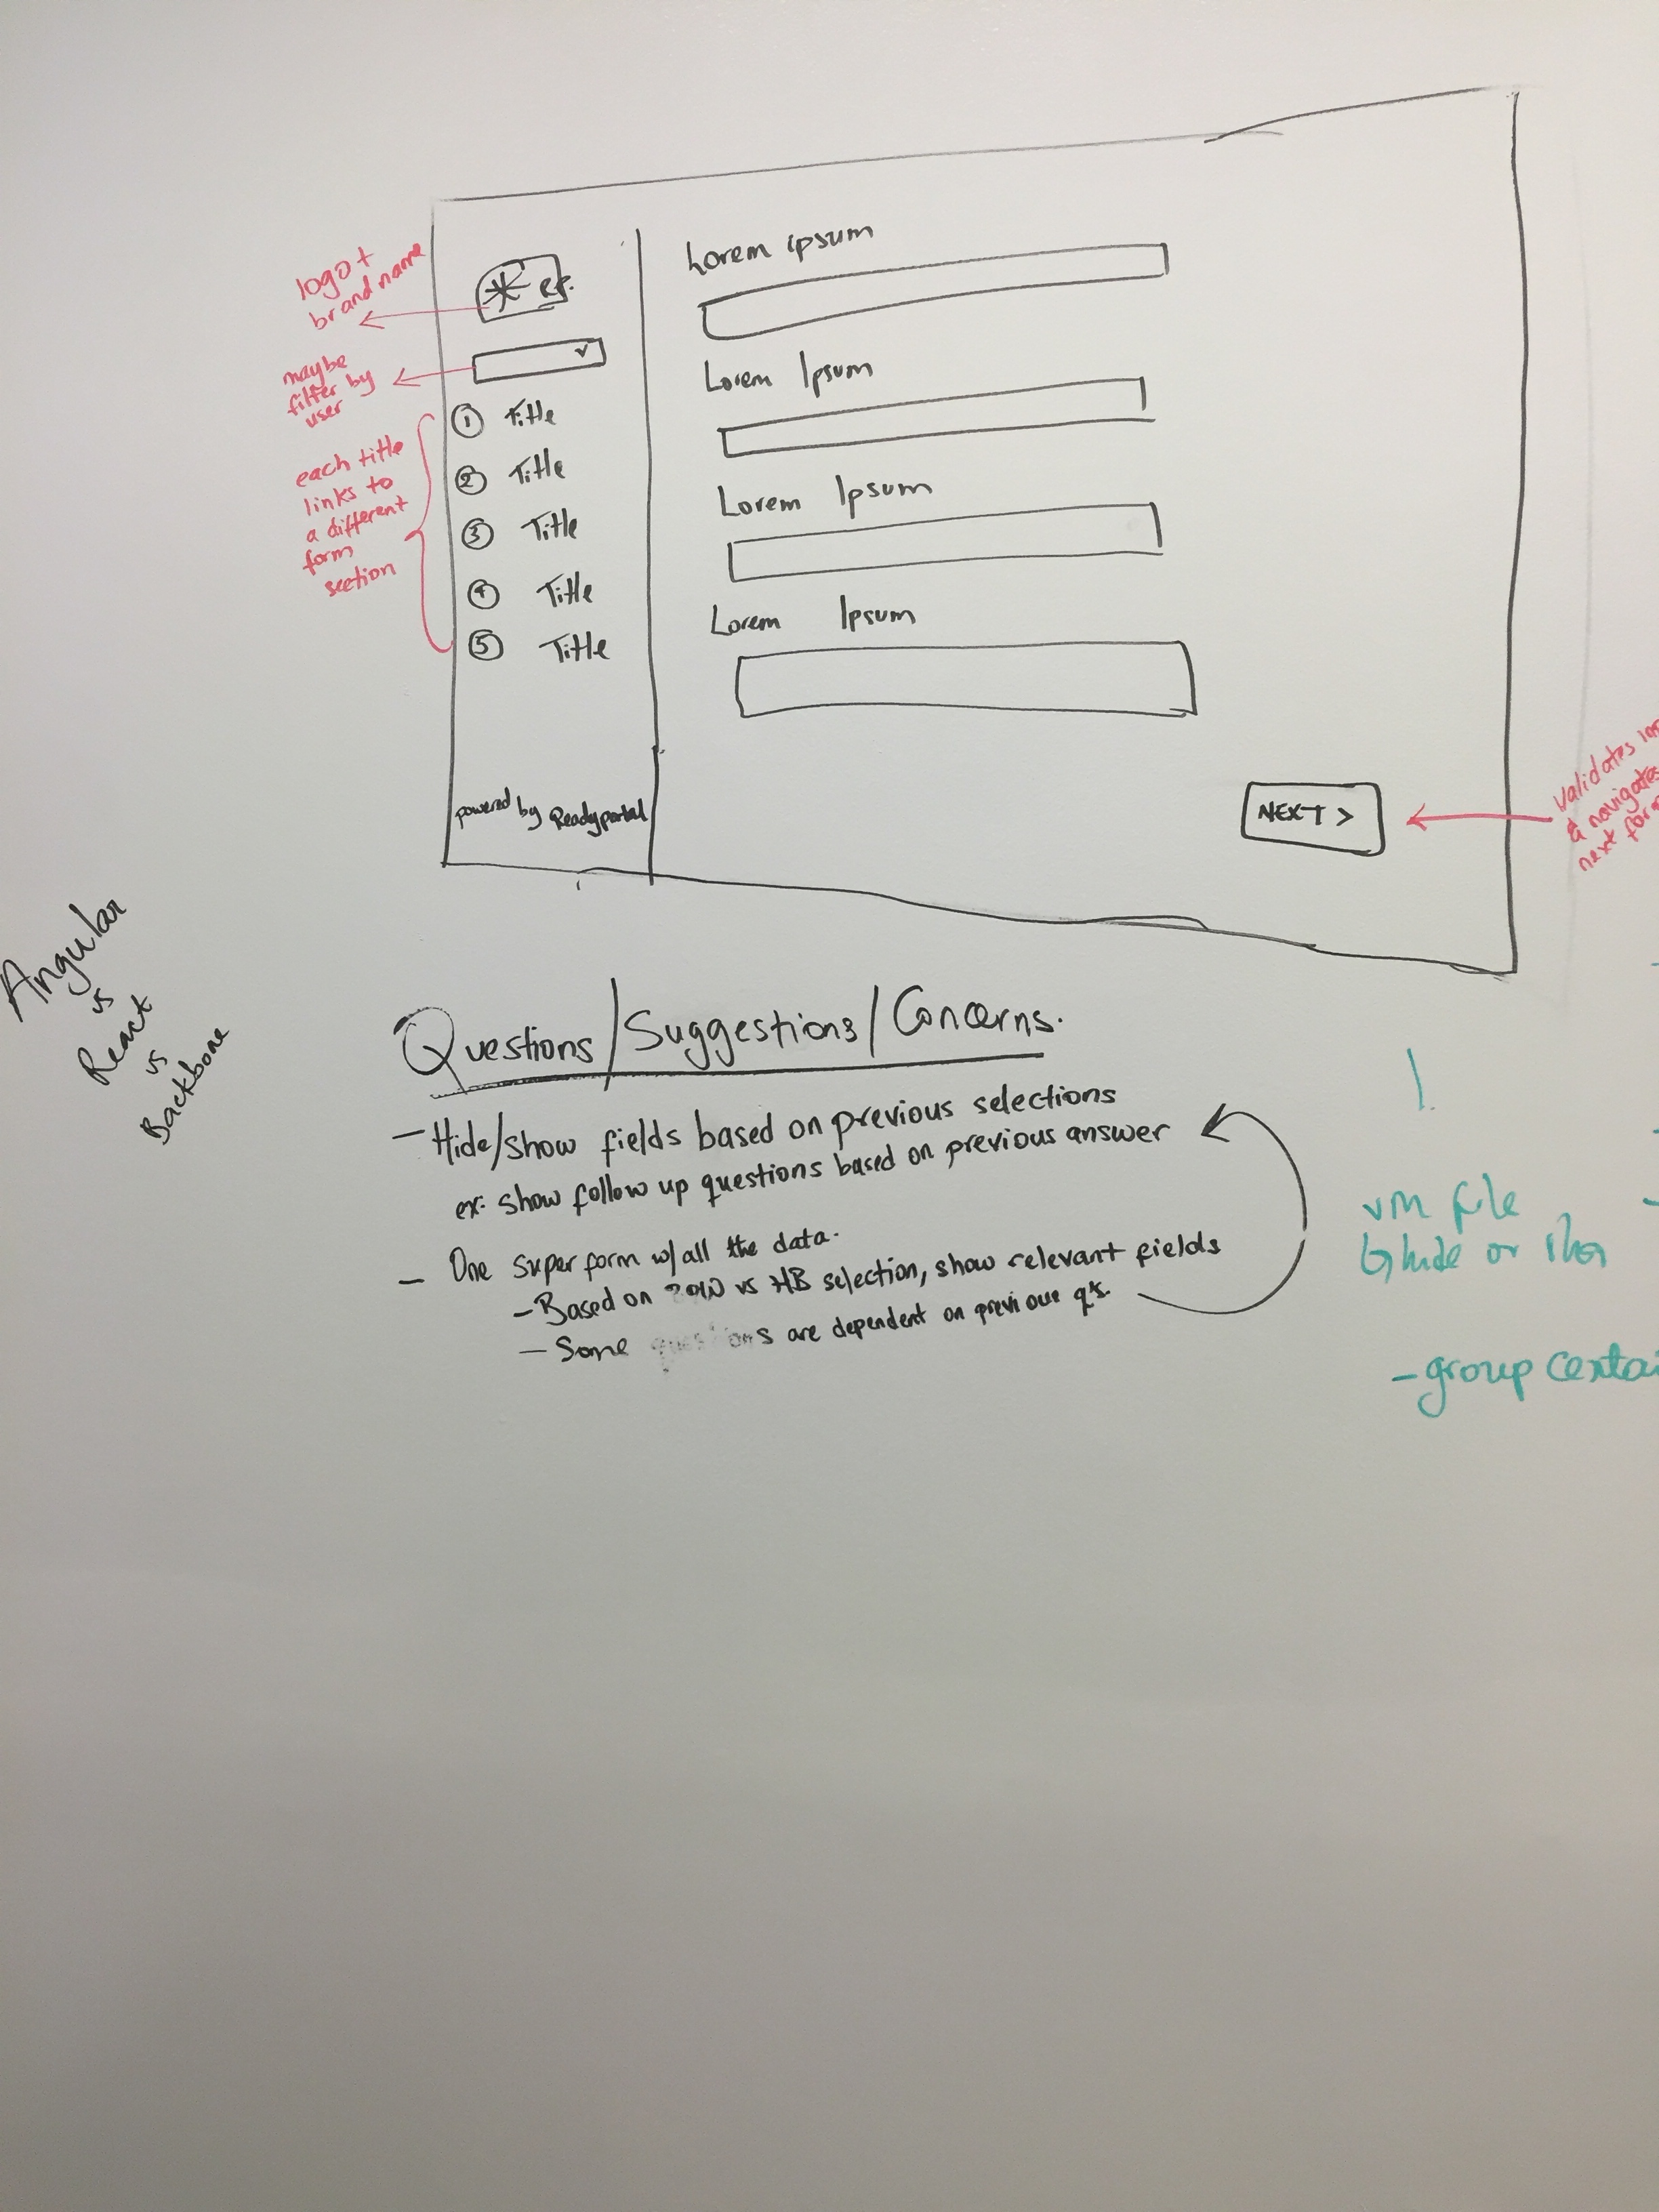 logo +
brand name
maybe
filter by
user
each title
links to
a different
form
section
① Title
② Title
③ Title
④ Title
⑤ Title
powered by Readyportal
Lorem ipsum
Lorem Ipsum
Lorem Ipsum
Lorem Ipsum
NEXT >
Validates
& navigates
next
Angular
vs
React
vs
Backbone
Questions/Suggestions/Concerns.
- Hide/show fields based on previous selections
ex: show follow up questions based on previous answer
- One super form w/ all the data.
- Based on vs HB selection, show relevant fields
- Some questions are dependent on previous q's.
vm file
hide or
- group